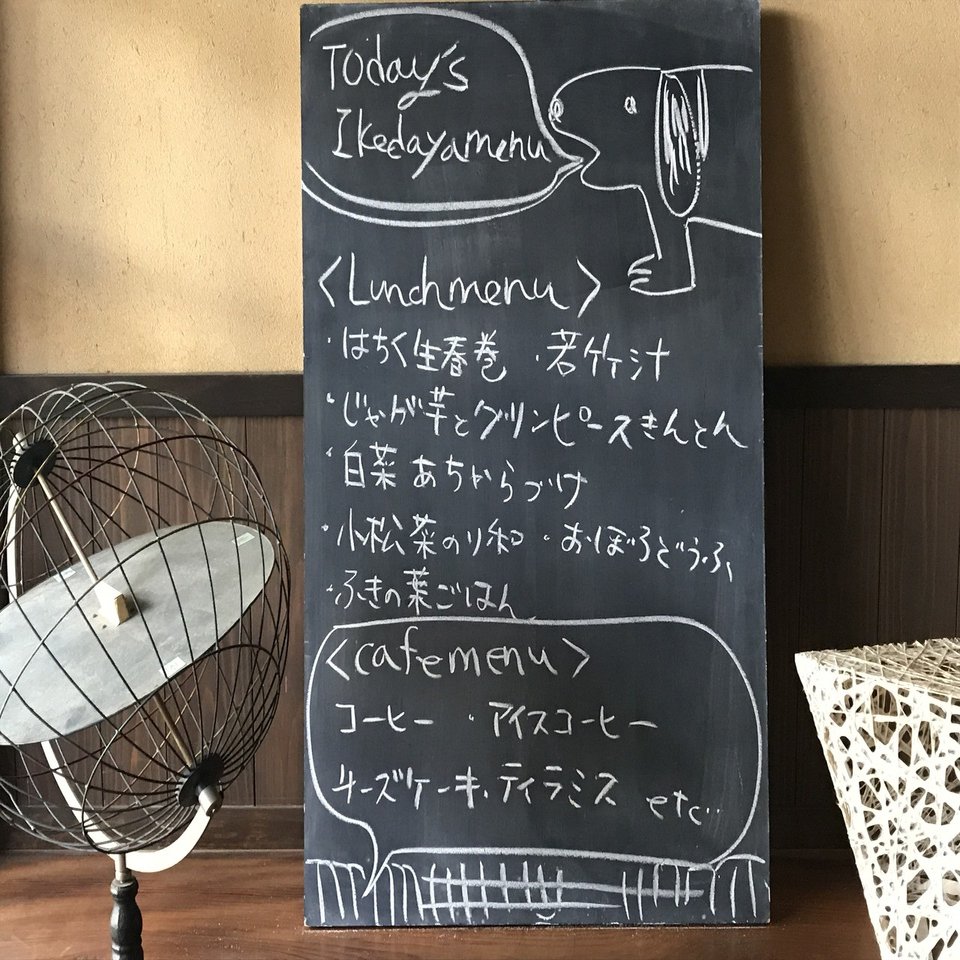 Today's
Ikedayamenu
<Lunchmenu>
・はちく生春巻 ・若竹汁
・じゃが芋とグリンピースきんとん
・白菜あちゃらづけ
・小松菜のり和 ・おぼろどうふ
・ふきの葉ごはん
<cafemenu>
コーヒー ・アイスコーヒー
チーズケーキ、ティラミス etc…